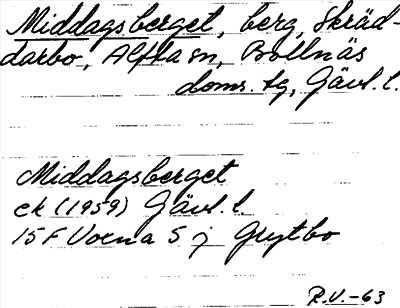 Middagsberget, berg, Skräd-
darbo, Alfta sn, Bollnäs
doms. tg, Gävl. l.
Middagsberget
ek (1959) Gävl. l.
15 F Voxna 5 j Grytbo
R.V.-63